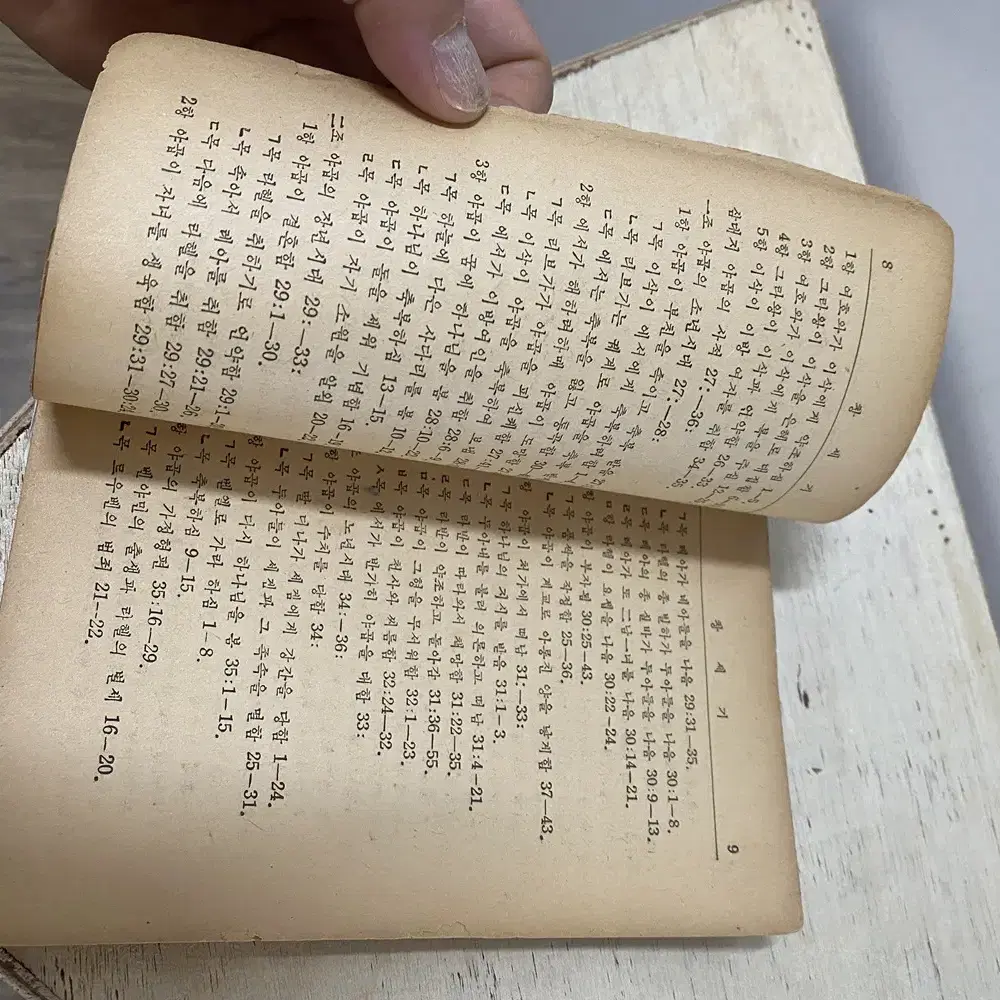 8 창 세 기
1항 여호와가 이삭에게 약조하심 1—5
2항 그랄왕이 이삭을 은혜로
3항 여호와가 이삭에게 복을
4항 그랄왕이 이삭과 언약함 26:
5항 이삭이 이방 여자를 취함 34—35
삼대지 야곱의 사적 27:—36:
一조 야곱의 소년시대 27:—28:
1항 야곱이 부친을 속이고 축복
ㄱ목 이삭이 에서에게 축복하려함
ㄴ목 리브가는 꾀계로 야곱을
ㄷ목 에서는 축복을 잃고 통곡함
2항 에서가 해하려하매 야곱이 도망함
ㄱ목 리브가가 야곱을 피신케함 27:
ㄴ목 이삭이 야곱을 축복하여 보냄
ㄷ목 에서가 이방여인을 취함 28:6
3항 야곱이 꿈에 하나님을 봄 28:10—
ㄱ목 하늘에 다은 사다리를 봄 10—12
ㄴ목 하나님이 축복하심 13—15
ㄷ목 야곱이 돌을 세워 기념함 16—
ㄹ목 야곱이 자기 소원을 말함 20—
二조 야곱의 장년시대 29:—33:
1항 야곱이 결혼함 29:1—30.
ㄱ목 라헬을 취하기로 언약함 29:1—
ㄴ목 속아서 레아를 취함 29:21—26.
ㄷ목 다음에 라헬을 취함 29:27—30.
2항 야곱이 자녀를 생육함 29:31—30:24
창 세 기 9
ㄱ목 레아가 네아들을 나음 29:31—35.
ㄴ목 라헬의 종 빌하가 두아들을 나음 30:1—8.
ㄷ목 레아의 종 실바가 두아들을 나음 30:9—13.
ㄹ목 레아가 또 二남一녀를 나음 30:14—21.
ㅁ목 라헬이 요셉을 나음 30:22—24.
항 야곱이 부자됨 30:25—43.
ㄱ목 품싹을 작정함 25—36.
ㄴ목 야곱이 계교로 아롱진 양을 낳게함 37—43.
항 야곱이 처가에서 떠남 31:—33:
ㄱ목 하나님의 지시를 받음 31:1—3.
ㄴ목 두아내를 불러 의론하고 떠남 31:4—21.
ㄷ목 라반이 따라와서 책망함 31:22—35.
ㄹ목 라반이 약조하고 돌아감 31:36—55.
ㅁ목 야곱이 그형을 무서워함 32:1—23.
ㅂ목 야곱이 천사와 씨름함 32:24—32.
ㅅ목 에서가 반기히 야곱을 대함 33:
조 야곱의 노년시대 34:—36:
항 야곱이 수치를 당함 34:
ㄱ목 딸 디나가 세겜에게 강간을 당함 1—24.
ㄴ목 두아들이 세겜과 그 족속을 멸함 25—31.
항 야곱이 다시 하나님을 봉 35:1—15.
ㄱ목 벧엘로 가라 하심 1—8.
ㄴ목 축복하심 9—15.
항 야곱의 가정형편 35:16—29.
ㄱ목 벤야민의 출생과 라헬의 별세 16—20.
ㄴ목 르우벤의 범죄 21—22.